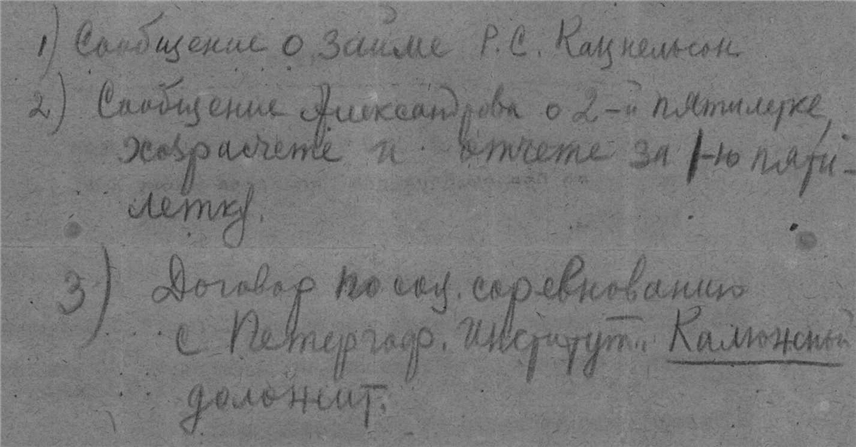 1) Сообщение о займе Р.С. Кацнельсон
2) Сообщение Александрова о 2-й пятилетке,
хозрасчете и отчете за 1-ю пяти-
летку.
3) Договор по соц. соревнованию
с Петергоф. Институт. Калюжный
доложит.